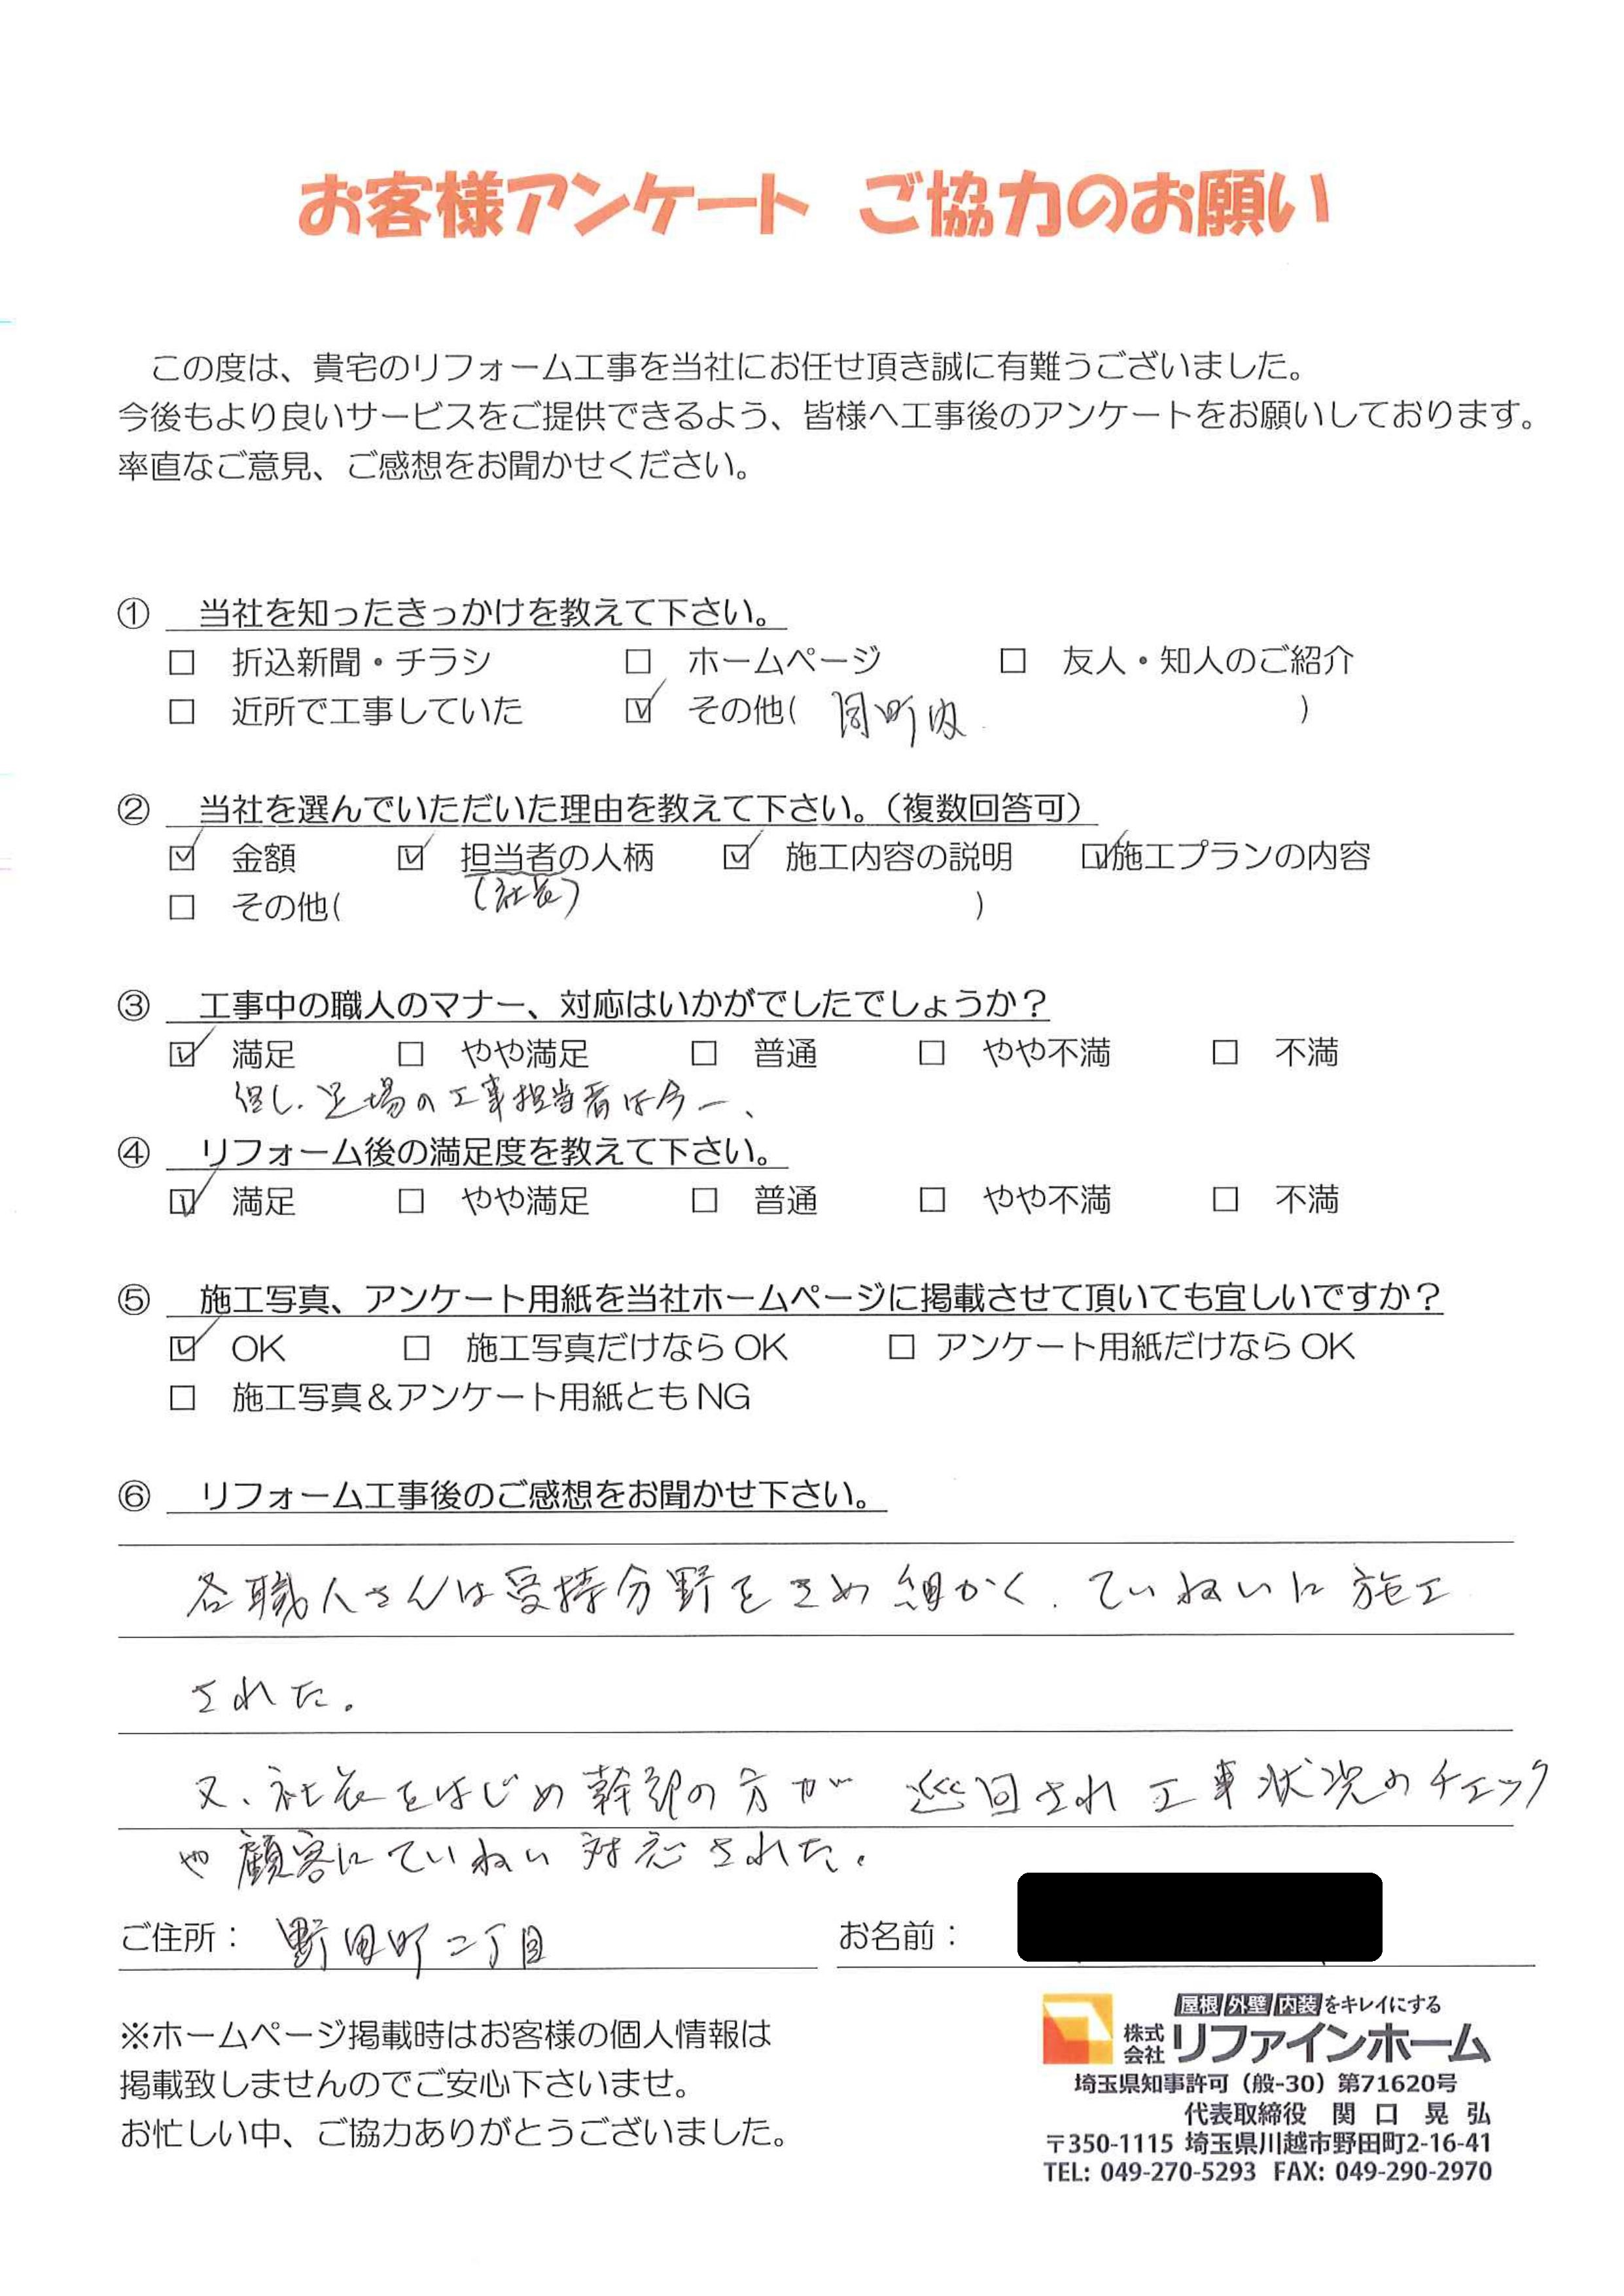 お客様アンケート ご協力のお願い
この度は、貴宅のリフォーム工事を当社にお任せ頂き誠に有難うございました。
今後もより良いサービスをご提供できるよう、皆様へ工事後のアンケートをお願いしております。
率直なご意見、ご感想をお聞かせください。
① 当社を知ったきっかけを教えて下さい。
□ 折込新聞・チラシ □ ホームページ □ 友人・知人のご紹介
□ 近所で工事していた ☑ その他( 同町内 )
② 当社を選んでいただいた理由を教えて下さい。（複数回答可）
☑ 金額 ☑ 担当者の人柄 ☑ 施工内容の説明 ☑施工プランの内容
(社長)
□ その他( )
③ 工事中の職人のマナー、対応はいかがでしたでしょうか？
☑ 満足 □ やや満足 □ 普通 □ やや不満 □ 不満
但し、足場の工事担当者は今一、
④ リフォーム後の満足度を教えて下さい。
☑ 満足 □ やや満足 □ 普通 □ やや不満 □ 不満
⑤ 施工写真、アンケート用紙を当社ホームページに掲載させて頂いても宜しいですか？
☑ OK □ 施工写真だけなら OK □ アンケート用紙だけなら OK
□ 施工写真＆アンケート用紙とも NG
⑥ リフォーム工事後のご感想をお聞かせ下さい。
各職人さんは受持分野をきめ細かく、ていねいに施工
された。
又、社長をはじめ幹部の方が 巡回され工事状況のチェック
や顧客にていねい対応された。
ご住所： 野田町二丁目 お名前：
※ホームページ掲載時はお客様の個人情報は
掲載致しませんのでご安心下さいませ。
お忙しい中、ご協力ありがとうございました。
屋根 外壁 内装をキレイにする
株式会社 リファインホーム
埼玉県知事許可（般-30）第71620号
代表取締役 関口 晃弘
〒350-1115 埼玉県川越市野田町2-16-41
TEL: 049-270-5293 FAX: 049-290-2970